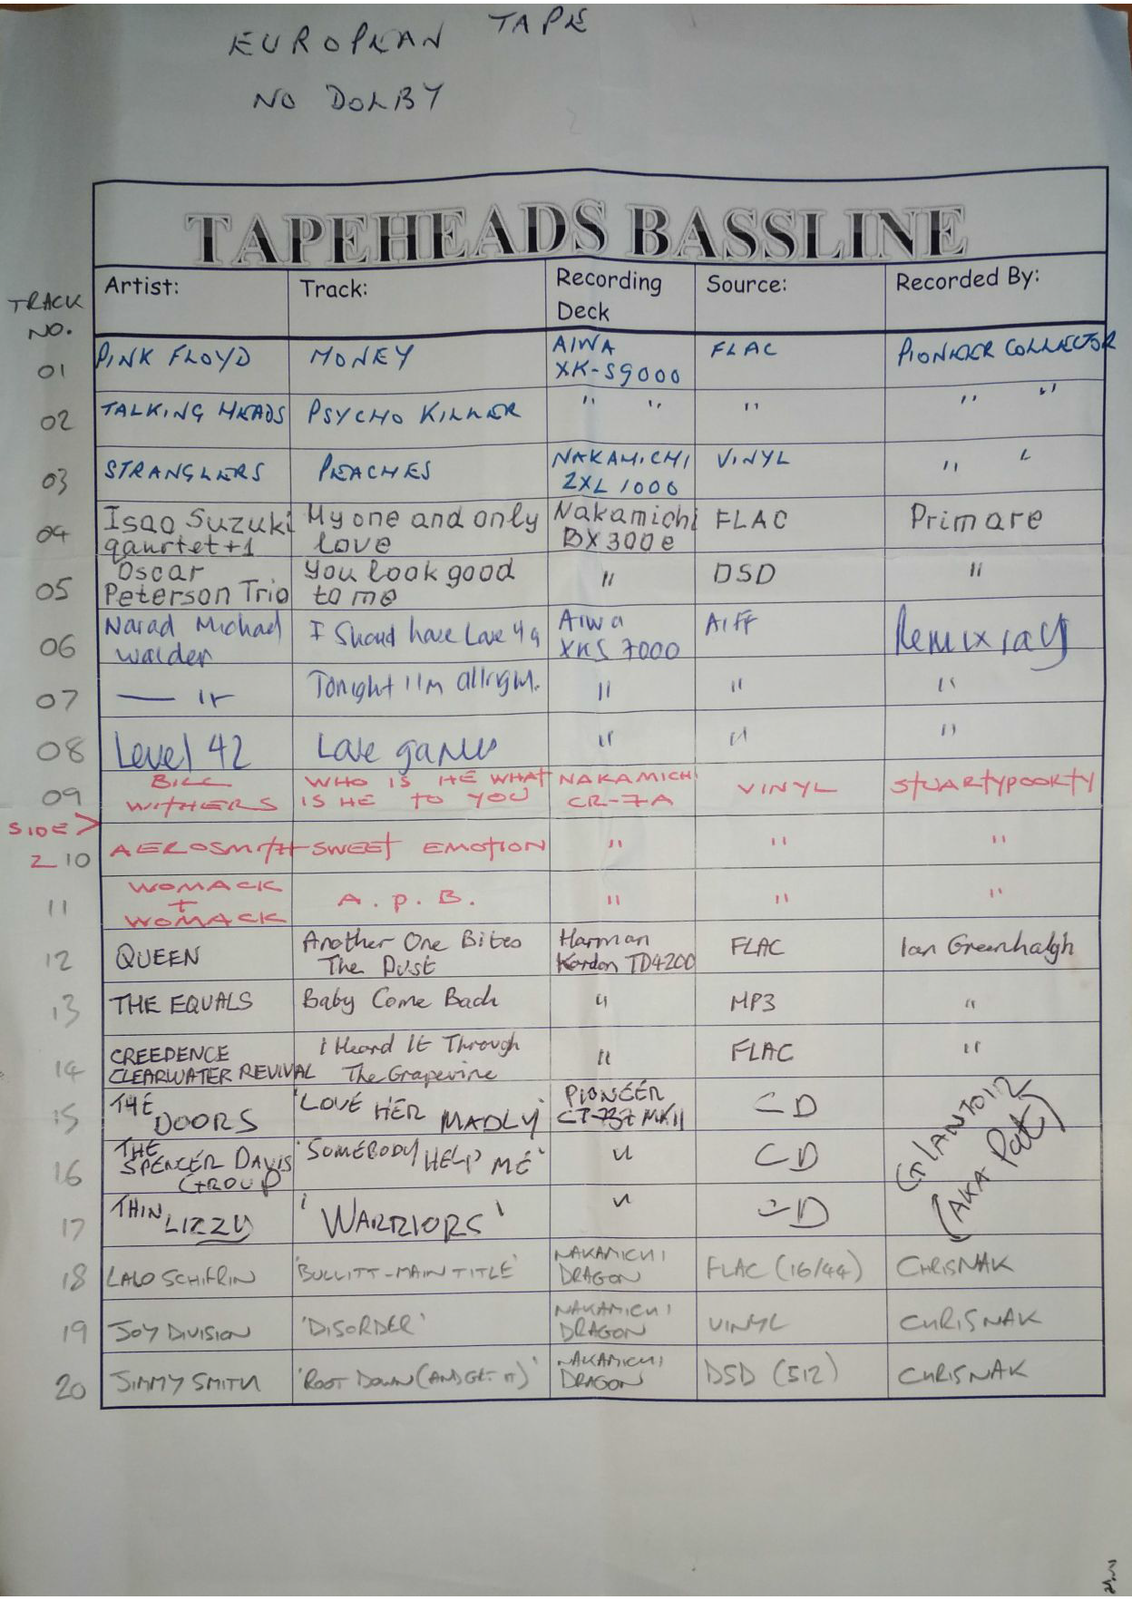 EUROPEAN TAPE
NO DOLBY
TAPEHEADS BASSLINE
TRACK NO. Artist: Track: Recording Deck Source: Recorded By:
01 PINK FLOYD MONEY AIWA XK-S9000 FLAC PIONEER COLLECTOR
02 TALKING HEADS PSYCHO KILLER " " " " "
03 STRANGLERS PEACHES NAKAMICHI ZXL 1000 VINYL " "
04 Isao Suzuki qaurtet+1 My one and only love Nakamichi BX300e FLAC Primare
05 Oscar Peterson Trio You look good to me " DSD "
06 Narad Michael Walden I Shoud have Love 4 a Aiwa XKS 7000 AIFF Remixray
07 — " Tonight I'm allright. " " "
08 Level 42 Love games " " "
09 BILL WITHERS WHO IS HE WHAT IS HE TO YOU NAKAMICHI CR-7A VINYL STUARTYPOORTY
SIDE 2 >
10 AEROSMITH SWEET EMOTION " " "
11 WOMACK + WOMACK A.P.B. " " "
12 QUEEN Another One Bites The Dust Harman Kardon TD4200 FLAC Ian Greenhalgh
13 THE EQUALS Baby Come Back " MP3 "
14 CREEDENCE CLEARWATER REVIVAL I Heard It Through The Grapevine " FLAC "
15 THE DOORS 'LOVE HER MADLY' PIONEER CT-737 MKII CD GIANTO12 (AKA Pat)
16 THE SPENCER DAVIS GROUP 'SOMEBODY HELP ME' " CD
17 THIN LIZZY 'WARRIORS' " CD
18 LALO SCHIFRIN 'BULLITT-MAIN TITLE' NAKAMICHI DRAGON FLAC (16/44) CHRISNAK
19 JOY DIVISION 'DISORDER' NAKAMICHI DRAGON VINYL CHRISNAK
20 JIMMY SMITH 'ROOT DOWN (AND GET IT)' NAKAMICHI DRAGON DSD (512) CHRISNAK